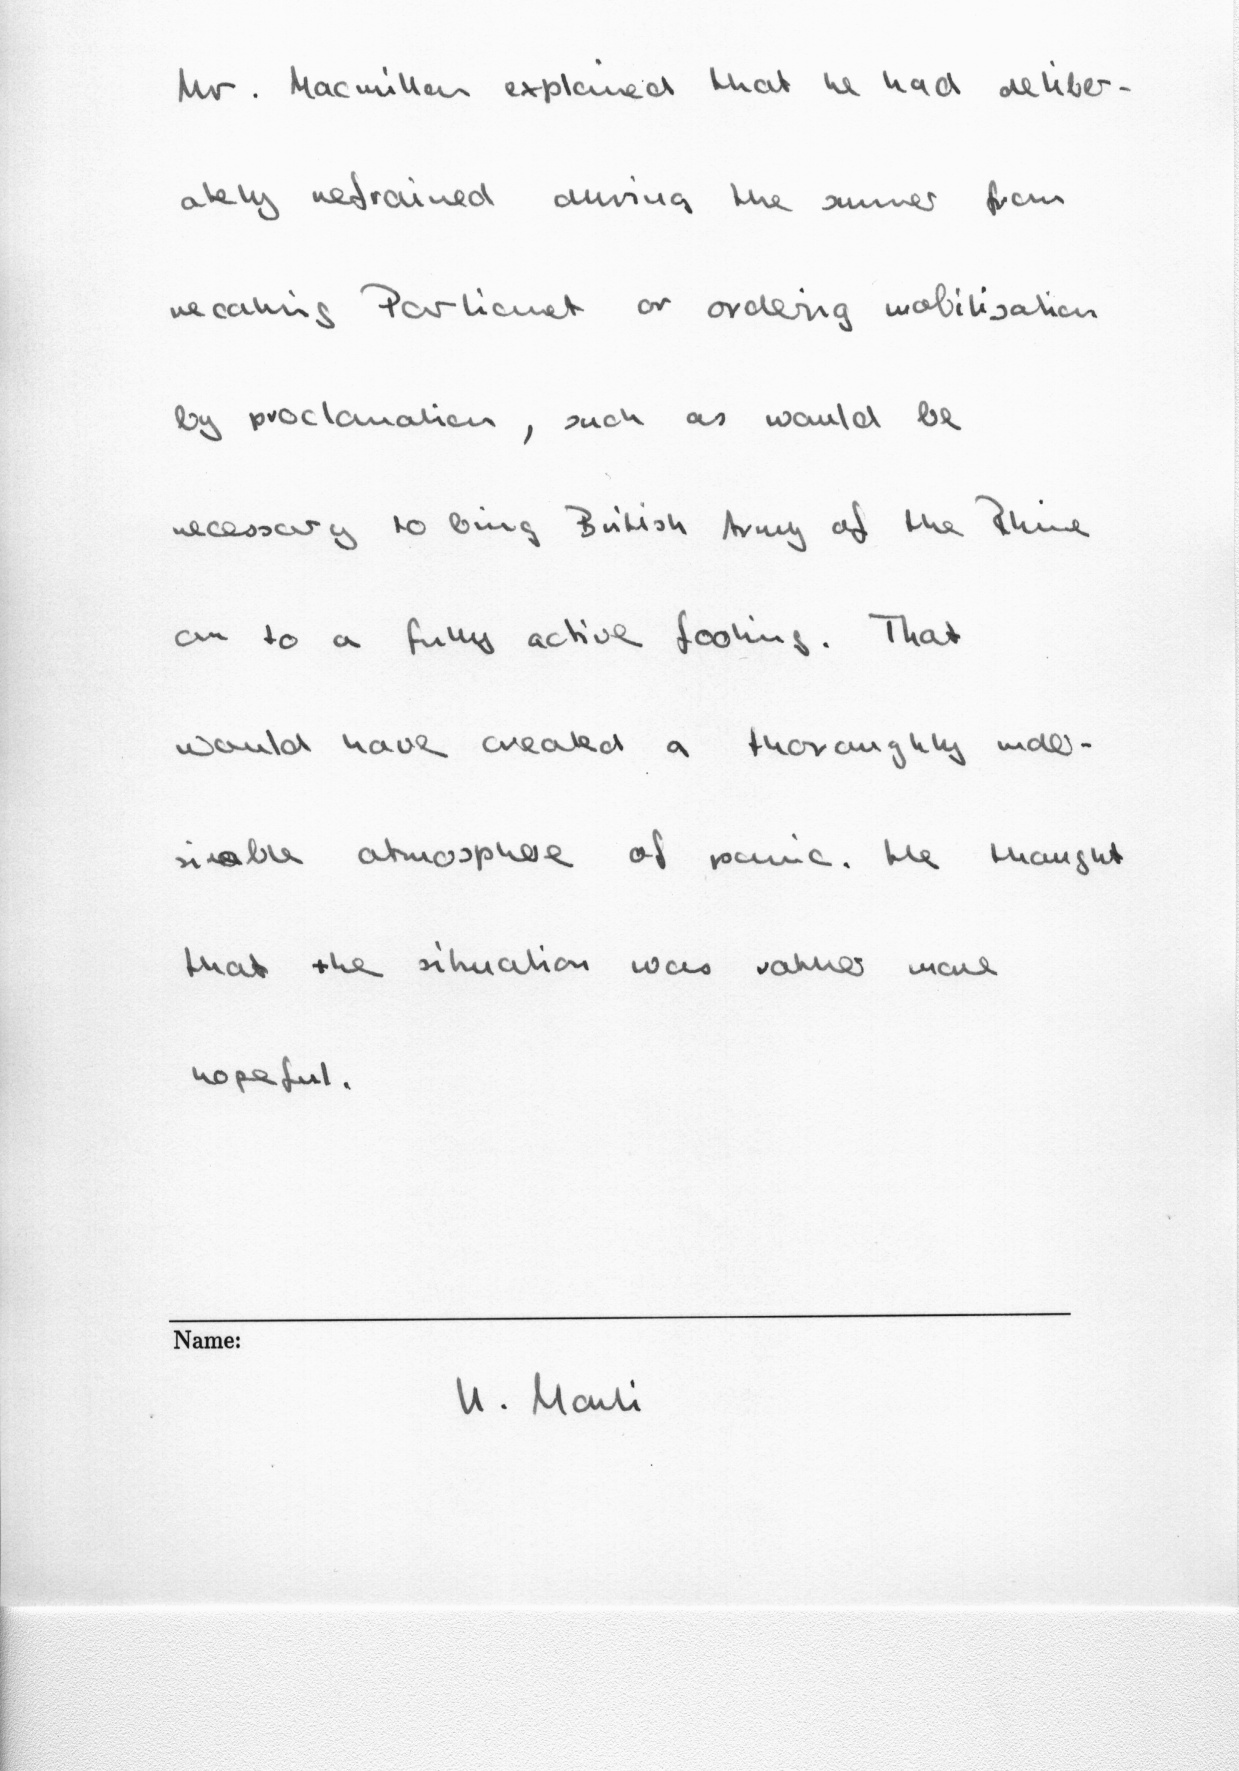 Mr. Macmillan explained that he had deliber-
ately refrained during the summer from
recalling Parliament or ordering mobilisation
by proclamation, such as would be
necessary to bring British Army of the Rhine
on to a fully active footing. That
would have created a thoroughly unde-
sirable atmosphere of panic. He thought
that the situation was rather more
hopeful.
Name:
U. Marti